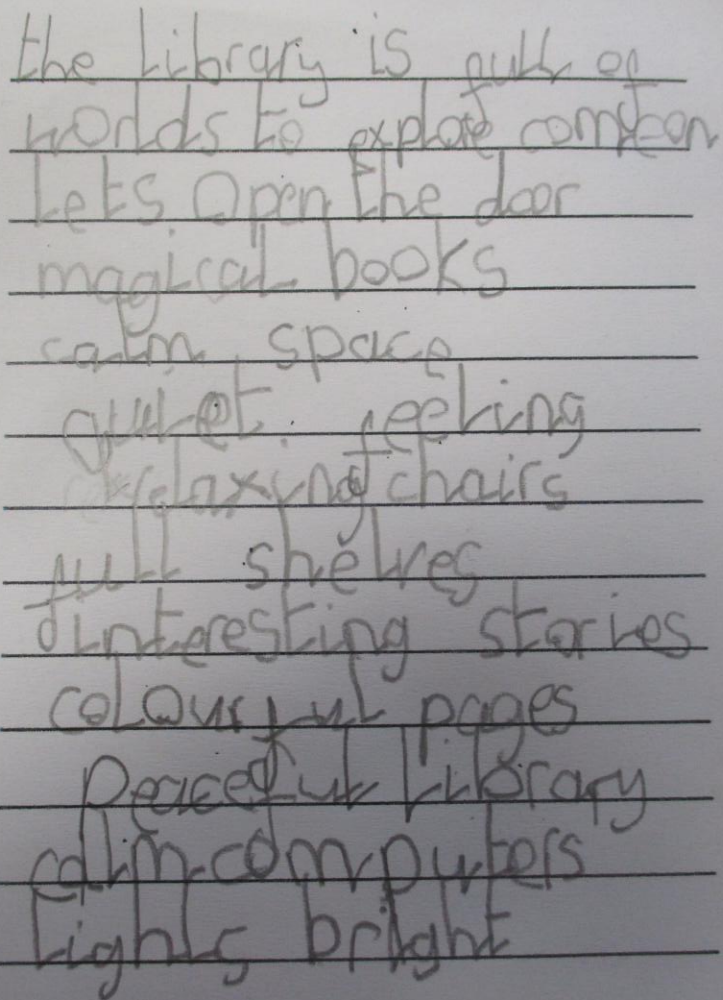 the library is full of
worlds to explore come on
Lets open the door
magical books
calm space
quiet feeling
relaxing chairs
full shelves
interesting stories
colourful pages
Peaceful Library
calm computers
Lights bright